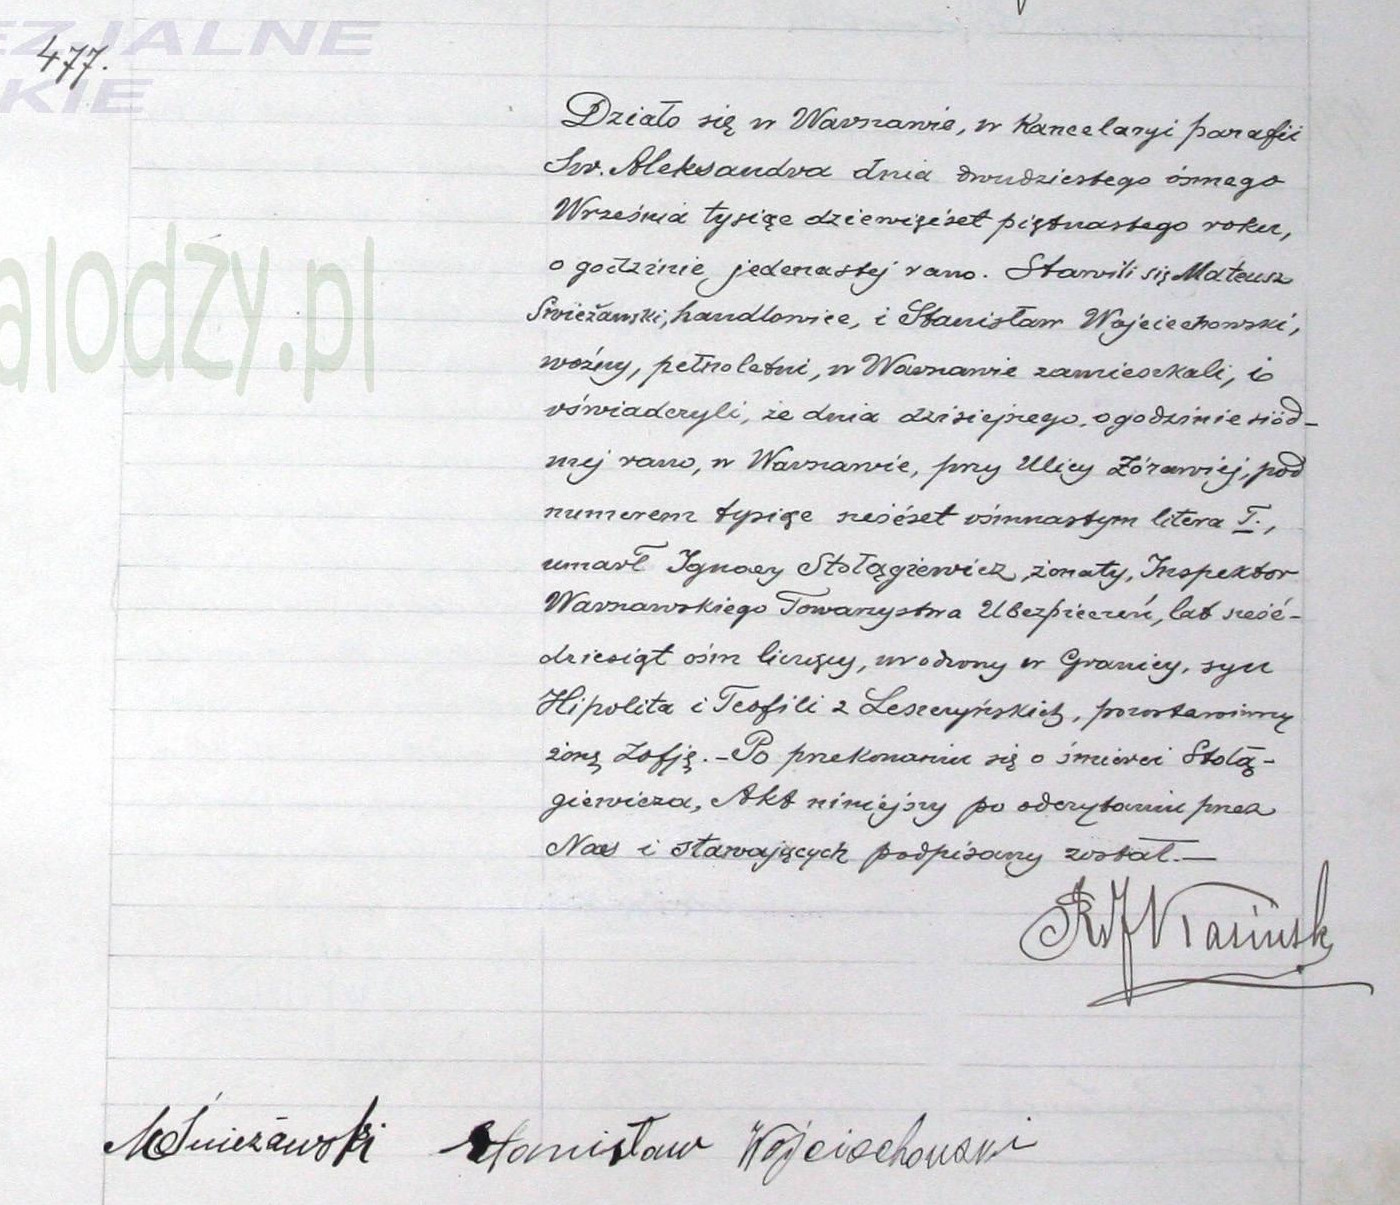 EZJALNE
KIE
alodzy.pl
477.
Działo się w Warszawie, w Kancelaryi parafii
Św. Aleksandra dnia dwudziestego ósmego
Września tysiąc dziewięćset piętnastego roku,
o godzinie jedenastej rano. Stawili się Mateusz
Świeżawski, handlowiec, i Stanisław Wojciechowski,
woźny, pełnoletni, w Warszawie zamieszkali, i
oświadczyli, że dnia dzisiejszego, o godzinie siód-
mej rano, w Warszawie, przy Ulicy Żórawiej, pod
numerem tysiąc sześćset ośmnastym litera T.,
umarł Ignacy Stołągiewicz, żonaty, Inspektor
Warszawskiego Towarzystwa Ubezpieczeń, lat sześć-
dziesiąt ośm liczący, urodzony w Granicy, syn
Hipolita i Teofili z Leszczyńskich, pozostawiwszy
żonę Zofję. - Po przekonaniu się o śmierci Stołą-
giewicza, Akt niniejszy po odczytaniu przez
Nas i stawających podpisany został. —
MŚwieżawski Stanisław Wojciechowski